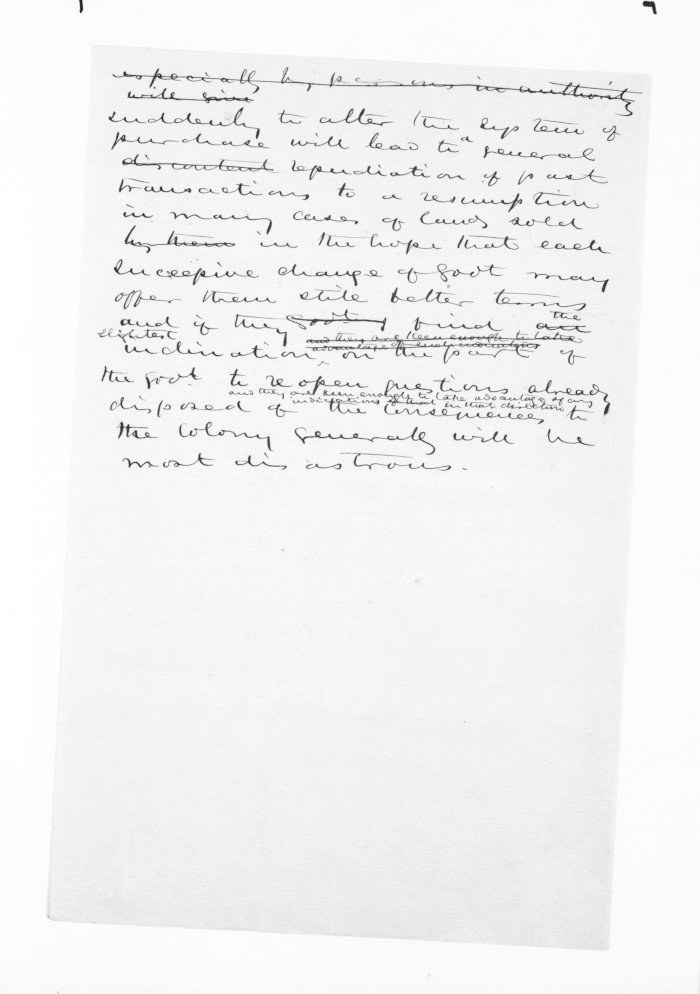 especially by persons in authority
will give
suddenly to alter the system of
purchase will lead to a general
discontent repudiation of past
transactions to a resumption
in many cases of lands sold
by them in the hope that each
succepive change of Govt may
offer them still better terms
and if they Govt find an the
slightest
and they are keen enough to take
advantage of such indications
inclination, on the part of
the Govt to reopen questions already
and they are keen enough to take advantage of any
indications of that in that direction
disposed of the consequences to
the Colony generally will be
most disastrous.